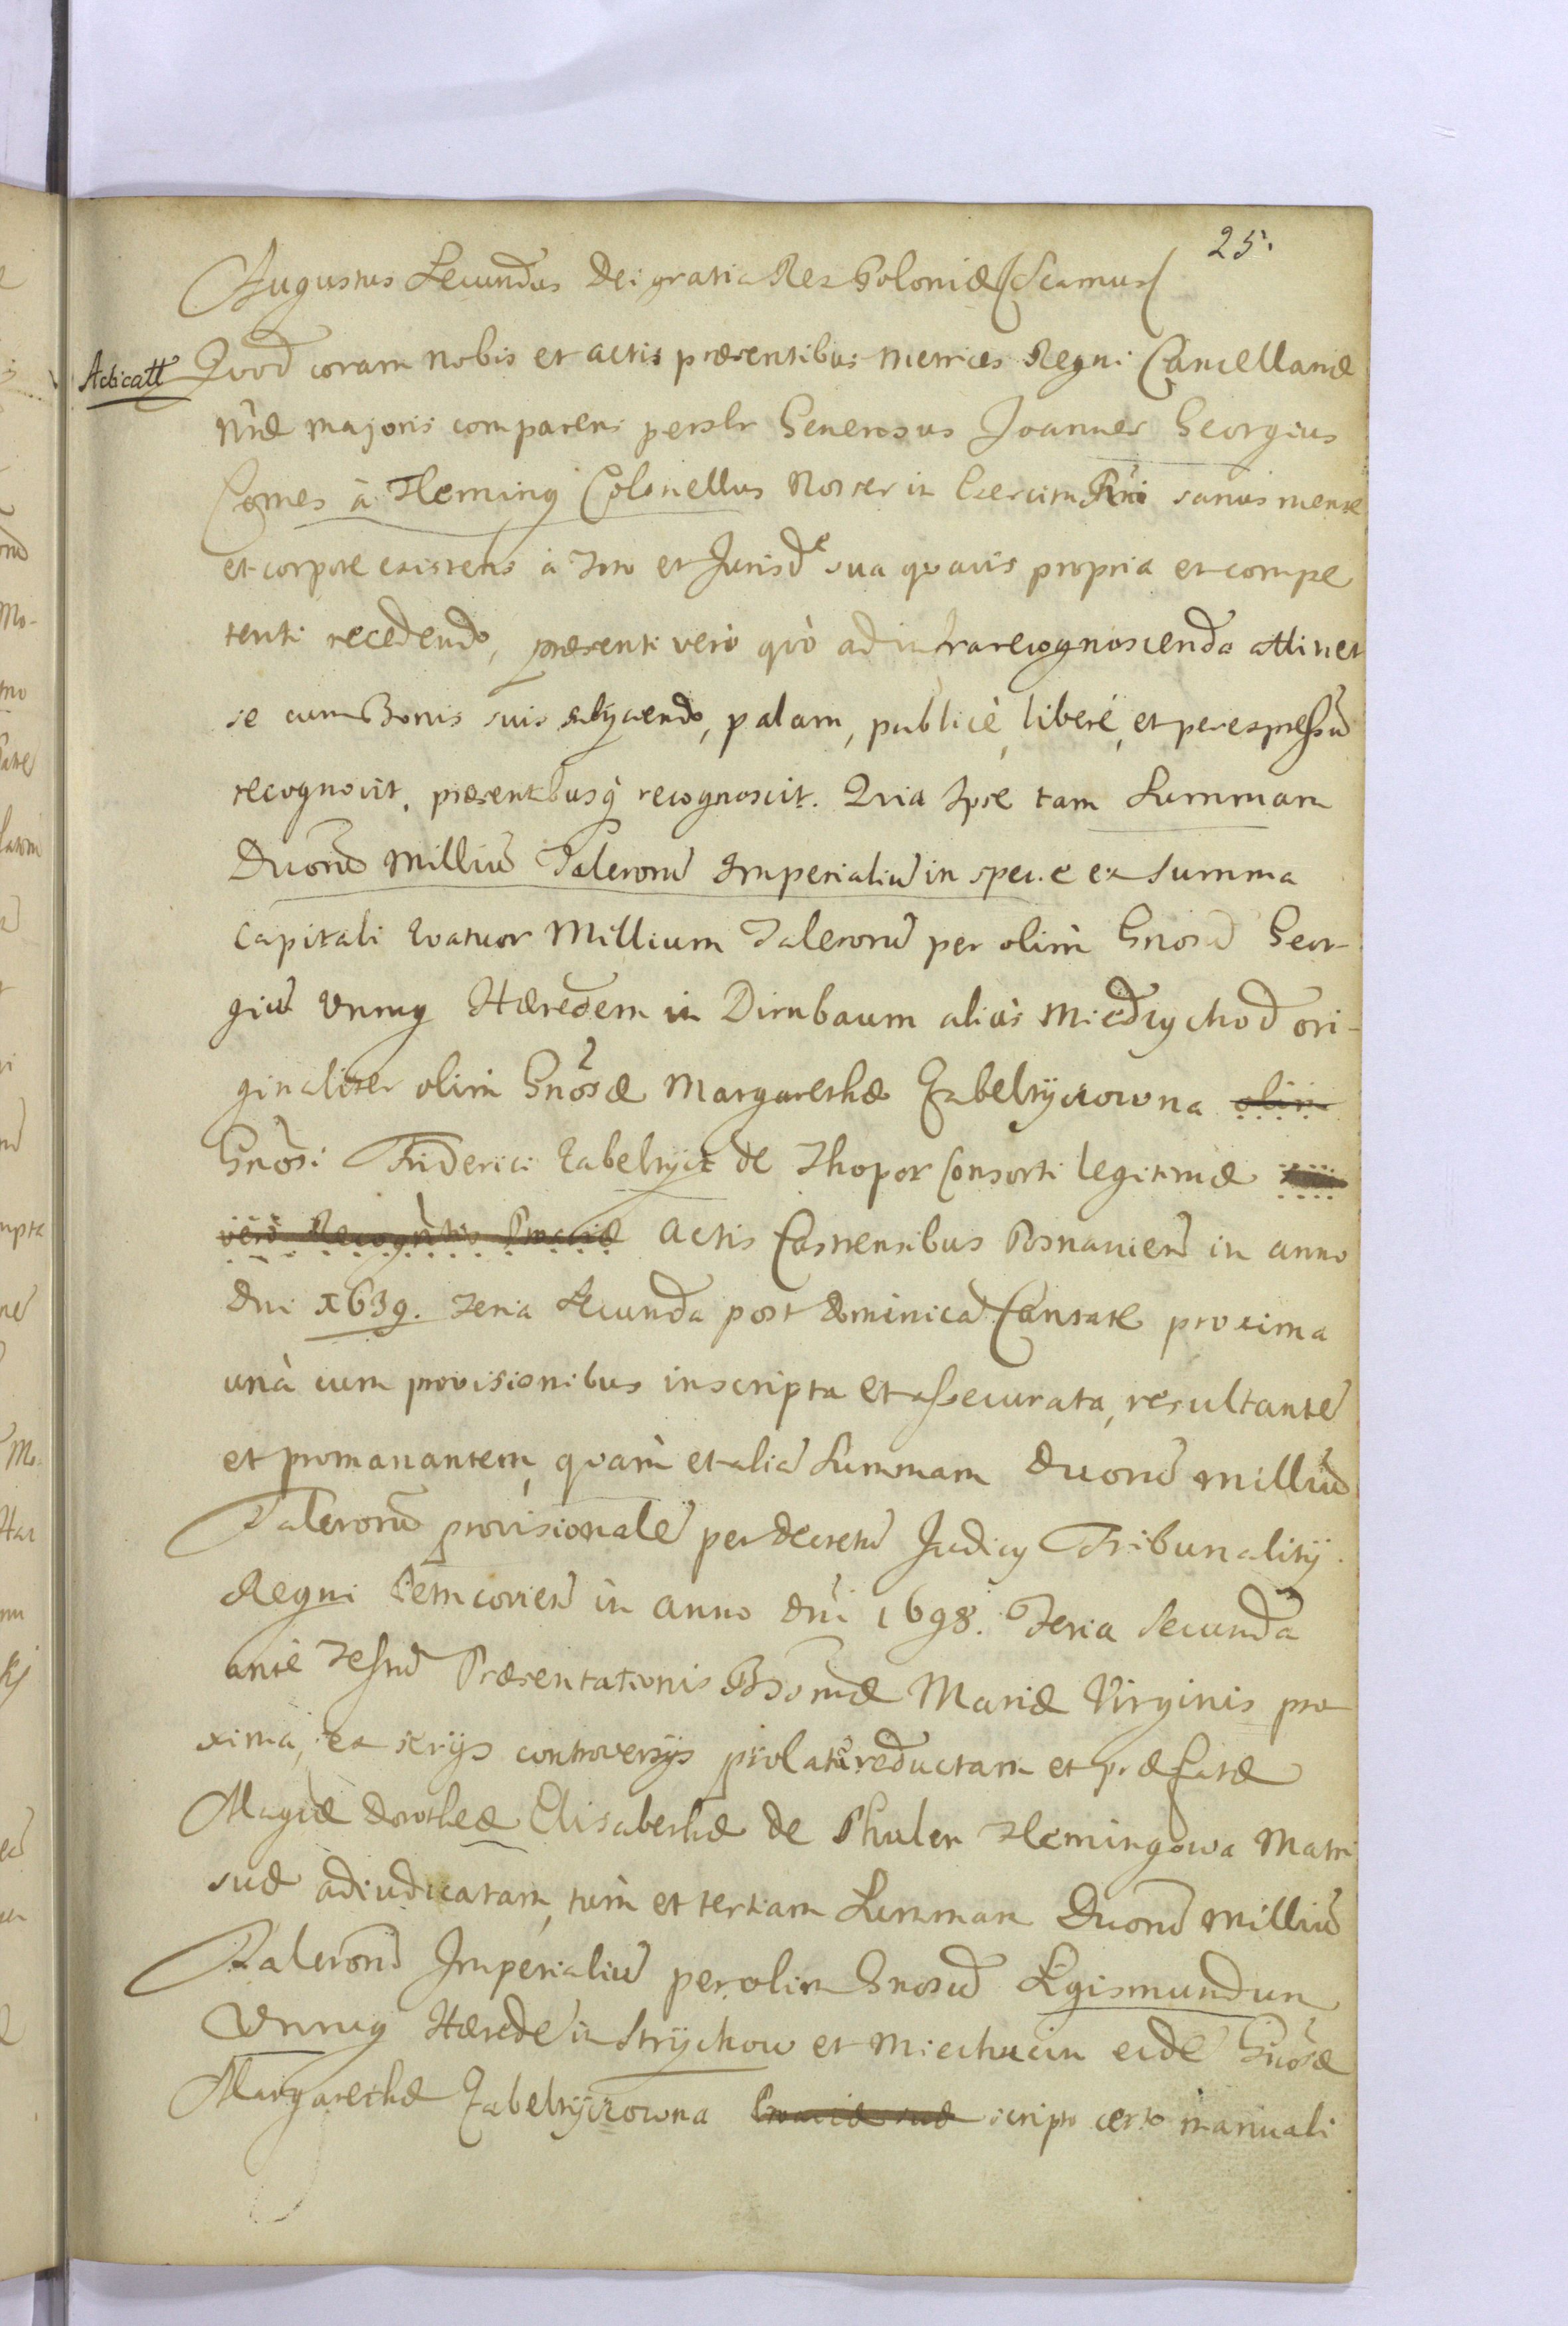 25.
Augustus Secundus Dei gratia Rex Poloniæ (Scamus)
Acticatt Quod coram nobis et actis præsentibus metrices Regni Cancellariæ
nr̃æ majoris comparens persłr Generosus Joannes Georgius
Comes à Fleming Colonellus Noster in Exercitu Rñi sanus mente
et corpore existens à Foro et Jurisdᵉ sua quavis propria et compe
tenti recedendo, præsenti verò quò ad infrarecognoscenda attinet
se cum Bonis suis subÿciendo, palam, publicè, liberè, et per expressũ
recognovit, præsentibusq̀ recognoscit. Quia Ipse tam Summam
Duorũ Milliũ Talerorũ Imperialiũ in specie ex Summa
Capitali Quatuor Millium Talerorũ per olim Gnosũ Geor-
giũ Unrug Hæredem in Dirnbaum aliàs Miedzychod ori-
ginaliter olim Gnõsæ Margarethæ Zabeltÿczowna olim
Gnõsi Friderici Zabeltÿcz de Thopor Consorti legitimæ
verò Recognitio Præviæ Actis Castrensibus Posnanien̄ in anno
Dni 1639. Feria Secunda post Dominicã Cantate proxima
unà cum provisionibus inscripta et assecurata, resultantẽ
et promanantem, quàm et aliã Summam Duorũ milliũ
Talerorũ provisionalẽ per decretũ Judicij Tribunalitij
Regni Petricovien̄ in anno Dñi 1698. Feria Secunda
ante Festũ Præsentationis Bssimæ Mariæ Virginis pro
xima, ex serijs controversijs prolatũ reductam et præfatæ
Magcæ Dorotheæ Elisabethæ de Phulen Flemingowa Matri
suæ adiudicatam, tùm et tertiam Summam Duorũ milliũ
Talerorũ Imperialiũ per olim Gnosũ Sigismundum
Unrug Hæredẽ in Strÿchow et Miechucin eidẽ Gnõsæ
Margarethæ Zabeltÿczowna scripto certo manuali